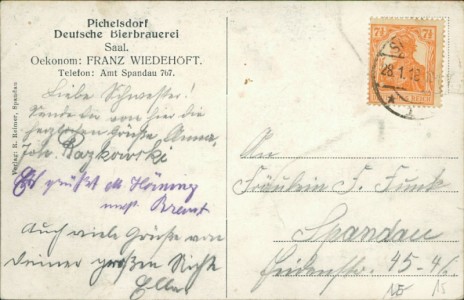 Pichelsdorf
Deutsche Bierbrauerei
Saal.
Oekonom: FRANZ WIEDEHÖFT.
Telefon: Amt Spandau 767.
Verlag: R. Reimer, Spandau
Liebe Schwester!
Sende dir von hier die
herzlichen Grüße, Anna,
Razkowski
Es grüßt M.
Auch viele Grüße von
deiner großen Nichte
Ella
7½ 7½
28.1.18
An
Fräulein F. Funk
Spandau
45-46